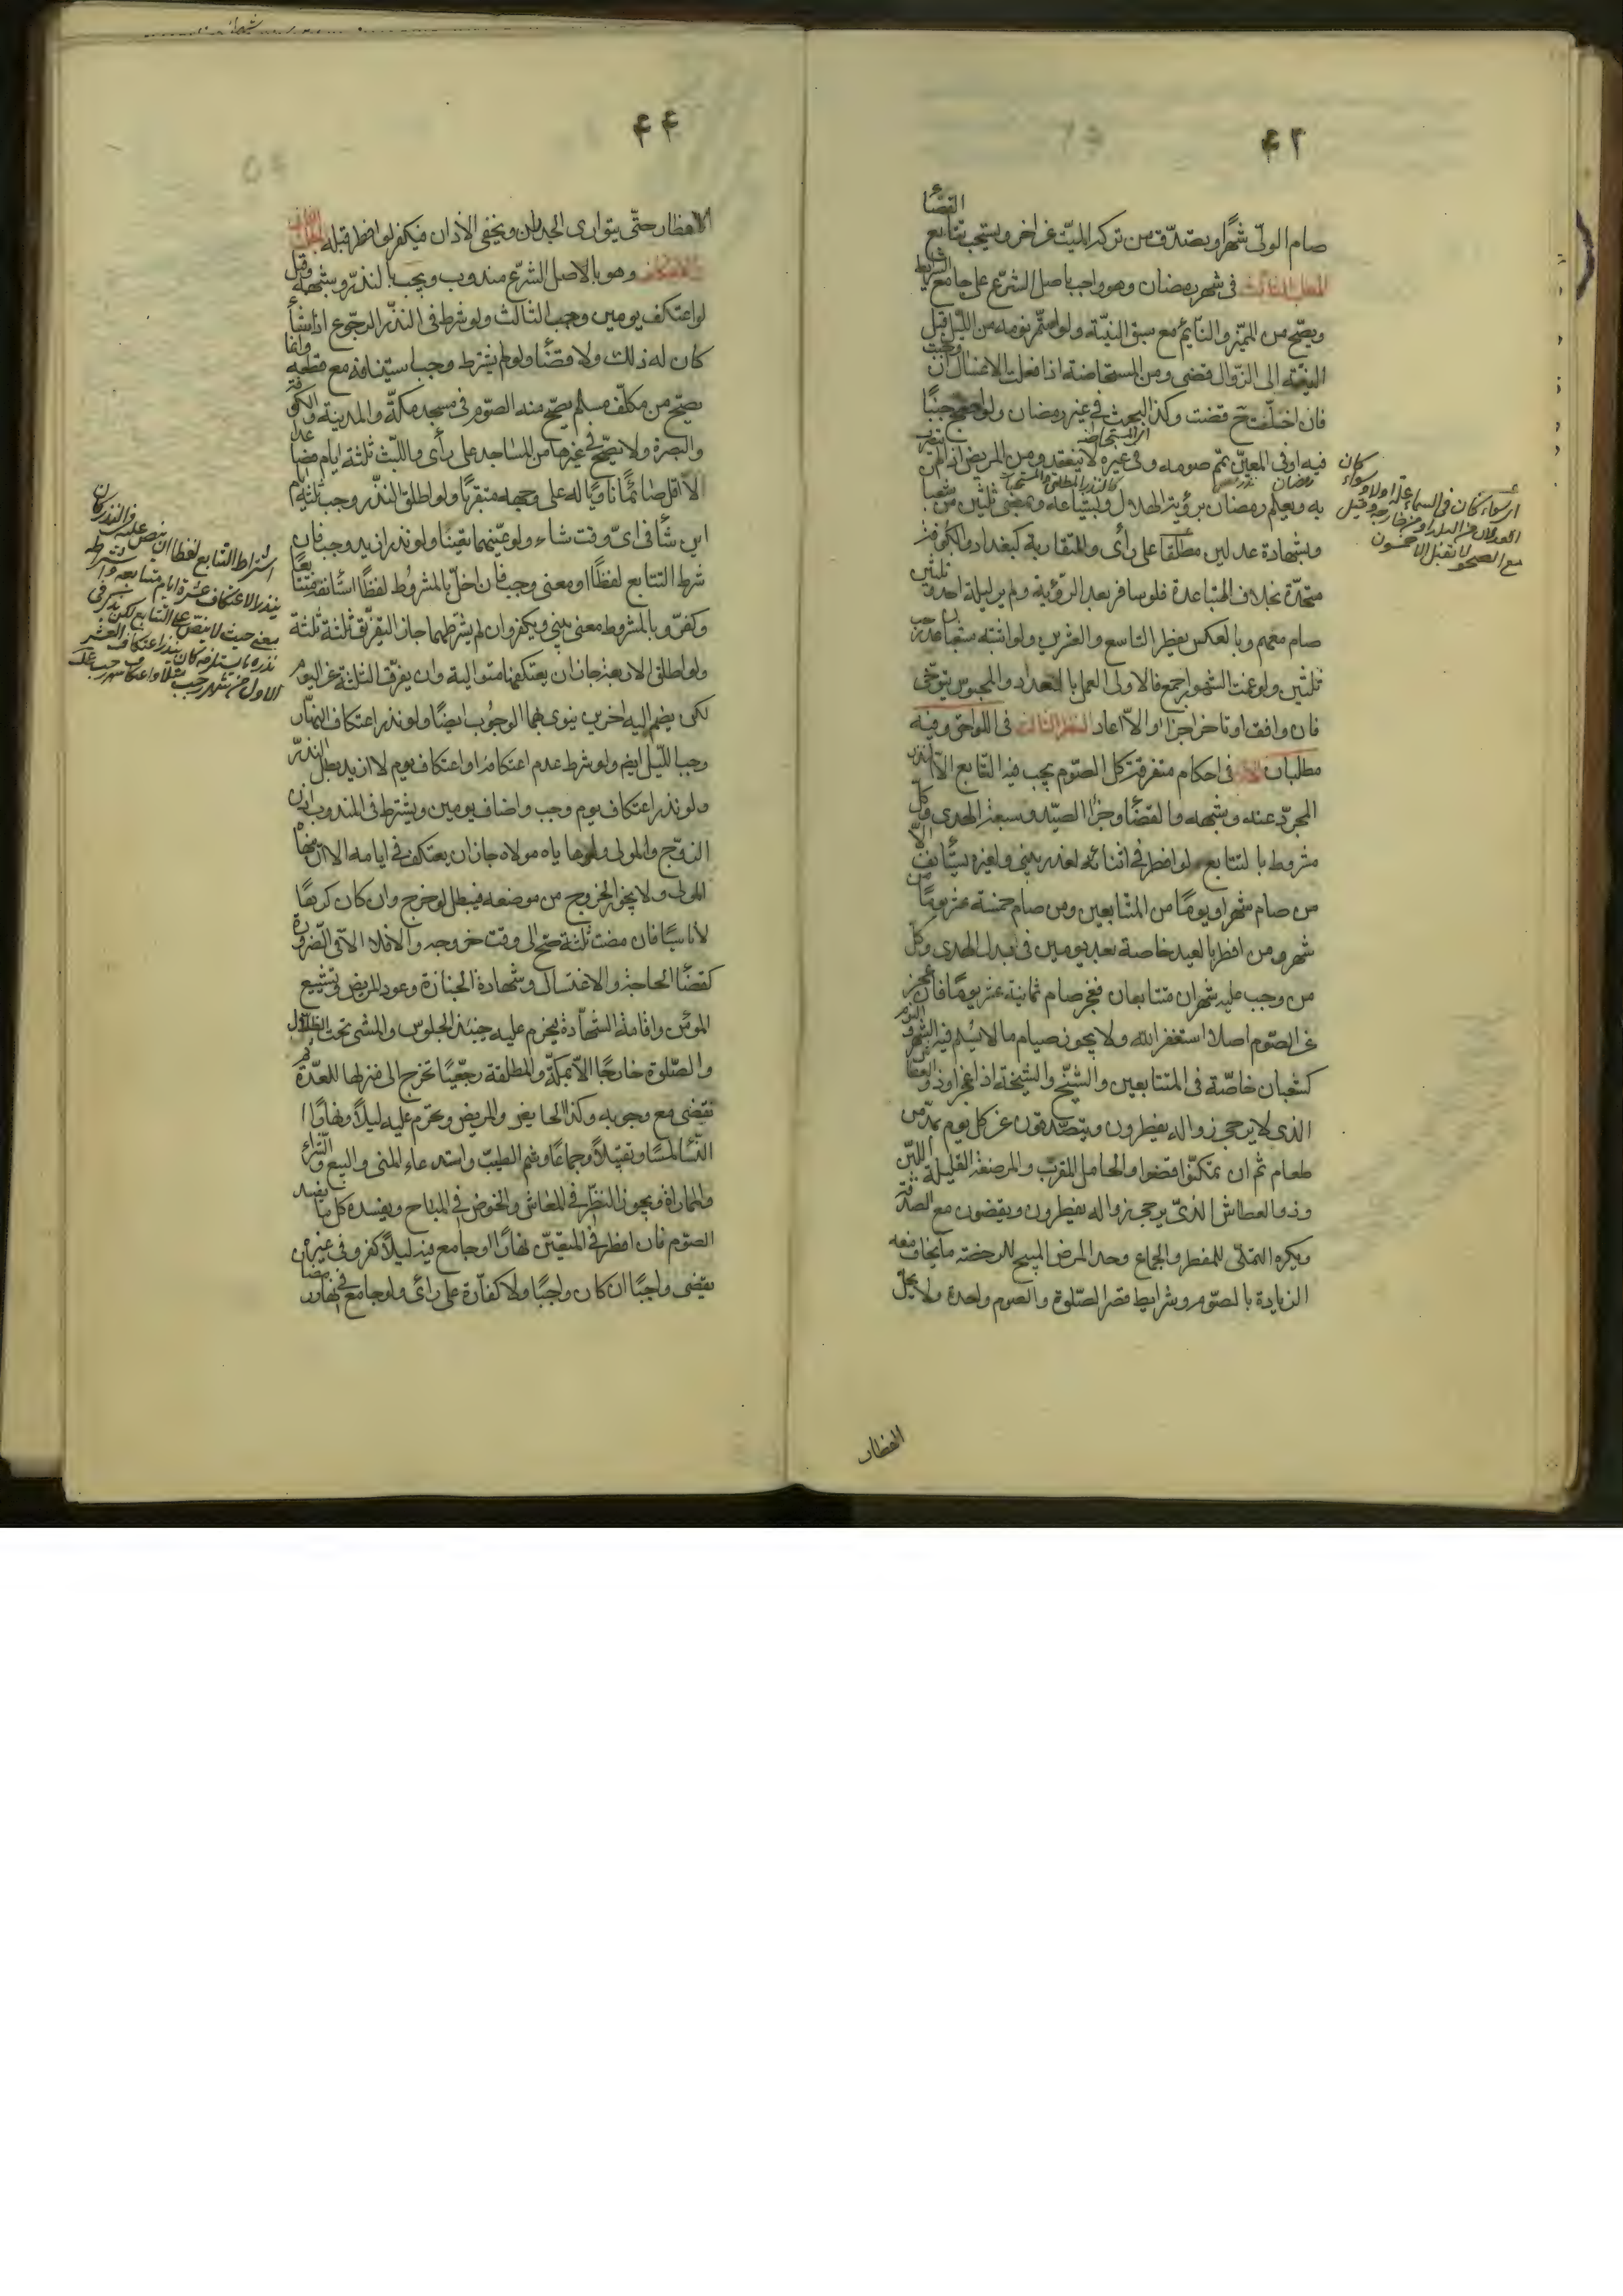 ۴۳
صام الولى شهرا ويصدّق من تركة الميّت عن اخر ويستحب تتابع القضأ
المطلب الثالث فى شهر رمضان وهو واجب باصل الشرع على جامع الشرايط
ويصحّ من المميّز والنّايم مع سبق النيّة ولو استمرّ نومه من اللّيل قبل
النيّة الى الزّوال قضى ومن المستحاضة اذا فعلت الاغسال ان وجبت
فان اخلّت ح قضت وكذا البحث فى غير رمضان ولو اصبح جنبًا
فيه او فى المعيّن تمّ صومه وفى غيره لا ينعقد ومن المريض اذا لم يتضرر
به ويعلم رمضان برؤية الهلال وبشياعه وبمضى ثلثين من شعبا
وبشهادة عدلين مطلقا على رأى والمتقاربة كبغداد والكوفة
متحدّة بخلاف المتباعدة فلو سافر بعد الرّؤية ولم ير ليلة احد وثلثين
صام معهم وبالعكس يفطر التاسع والعشرين ولو اشتبه شعبان عدّ رجب
ثلثين ولو غمت الشهور اجمع فالاولى العمل بالعدد والمحبوس يتوخى
فان وافق او تاخر اجزأ والاّ اعاد النظر الثالث فى اللواحق وفيه
مطلبان الاول فى احكام متفرقة كل الصّوم يجب فيه التتابع الاّ النذر
المجرّد عنه وشبهه والقضأ وجزأ الصّيد وسبعة الهدى وكلّ
مشروط بالتتابع لو افطر فى اثنائه لعذر يبنى ولغيره يستأنف الاّ
من صام شهرا ويوما من المتتابعين ومن صام خمسة عشر يومًا من
شهر ومن افطر بالعيد خاصة بعد يومين فى بدل الهدى وكلّ
من وجب عليه شهران متتابعان فعجز صام ثمانية عشر يومًا فان عجز
عن الصّوم اصلا استغفر الله ولا يجوز صيام ما لا يسلم فيه الشهر و اليوم
كشعبان خاصّة فى المتتابعين والشّيخ والشيخة اذا عجزا وذو العطاش
الذى لا يرجى زواله يفطرون ويتصدّقون عن كل يوم بمدّ من
طعام ثم ان تمكنّوا قضوا والحامل المقرب والمرضعة القليلة اللّبن
وذو العطاش الذىّ يرجى زواله يفطرون ويقضون مع الصدقة
ويكره التملّى للمفطر والجماع وحدّ المرض المبيح للرخصة ما يخاف معه
الزيادة بالصّوم وشرايط قصر الصّلوة والصوم واحدة ولا يحلّ
اى المستحاضة
رمضان
اى سواء كان فى السماء علّة او لا وسواء كان
العدلان من البلد او من خارجه وقيل
مع الصحو لا تقبل الا خمسون
افطار
۴۴
الافطار حتّى يتوارى الجدران ويخفى الاذان فيكفر لو افطر قبله المطلب الثانى
الاعتكاف وهو بالاصل الشرّع مندوب ويجب بالنذر وشبهه وقيل
لو اعتكف يومين وجب الثالث ولو شرط فى النذر الرجوع اذا شأ
كان له ذلك ولا قضأ ولو لم يشترط وجب استينافه مع قطعه وانما
يصحّ من مكلّف مسلم يصحّ منه الصّوم فى مسجد مكّة والمدينة والكوفة
والبصرة ولا يصّح فى غيرها من المساجد على رأى واللّبث ثلثة ايام فصاعدا
لا اقل صائمًا ناويًا له على وجهه متقربًا ولو اطلق النذر وجب ثلثة ايام
اين شأ فى اىّ وقت شاء ولو عيّنهما تعيّنا ولو نذر ازيد وجب فان
شرط التتابع لفظًا او معنى وجب فان اخلّ بالمشروط لفظًا استأنف متتابعًا
وكفرّ وبالمشروط معنى يبنى ويكفر وان لم يشرطهما جاز التفرّق ثلثة ثلثة
ولو اطلق الاربعة جاز ان يعتكفها متوالية وان يفرّق الثلثة عن اليوم
لكن يضم اليه اخرين ينوى بهما الوجوب ايضًا ولو نذر اعتكاف النهار
وجب اللّيل ايضم ولو شرط عدم اعتكافه او اعتكاف يوم لا ازيد بطل النذر
ولو نذر اعتكاف يوم وجب واضاف يومين ويشترط فى المندوب اذن
الزوج والمولى ولو هاياه مولاه جاز ان يعتكف فى ايامه الا ان ينهاه
المولى ولا يجوز الخروج من موضعه فيبطل لو خرج وان كان كرها
لا ناسيًا فان مضت ثلثة صحّ الى وقت خروجه والا فلا الاّ فى الضّرورة
كقضأ الحاجة والاغتسال وشهادة الجنازة وعود المريض وتشييع
المؤمن واقامة الشهّادة فيحرم عليه حينئذ الجلوس والمشى تحت الظلال
والصّلوة خارجًا الاّ بمكّة والمطلقة رجعيًّا تخرج الى منزلها للعدّة ثم
تقضى مع وجوبه وكذا الحايض والمريض ويحرم عليه ليلاً ونهارًا
النسّأ لمسًا وتقبيلاً وجماعًا وشم الطيب واستدعاء المنى والبيع والشّراء
والمماراة ويجوز النظر فى المعاش والخوض فى المباح ويفسده كل ما يفسد
الصّوم فان افطر فى المتعيّن نهارًا او جامع فيه ليلاً كفر وفى غيره
يقضى واجبًا ان كان واجبًا ولا كفّارة على رأى ولو جامع فى نهار رمضا
اشتراط التتابع لفظا ان ينص عليه فى النذر كان
ينذر الاعتكاف عشرة ايام متتابعة واشتراطه
معنى حيث لا ينص على التتابع لكن يذكر فى
نذره ما يستلزمه كان ينذر اعتكاف العشر
الاول من شهر رجب مثلا او اعتكاف شهر رجب